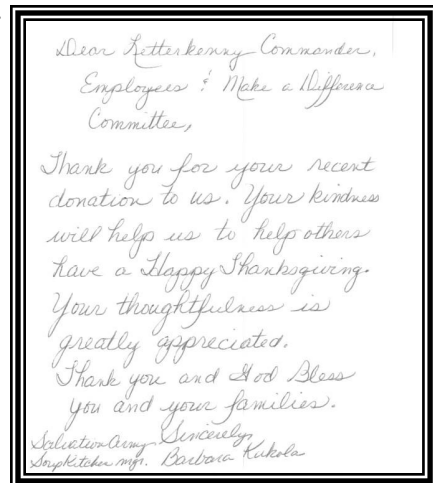 Dear Letterkenny Commander,
Employees & Make a Difference
Committee,
Thank you for your recent
donation to us. Your kindness
will help us to help others
have a Happy Thanksgiving.
Your thoughtfulness is
greatly appreciated.
Thank you and God Bless
you and your families.
Sincerely,
Barbara Kukola
Salvation Army
Soup Kitchen mgr.